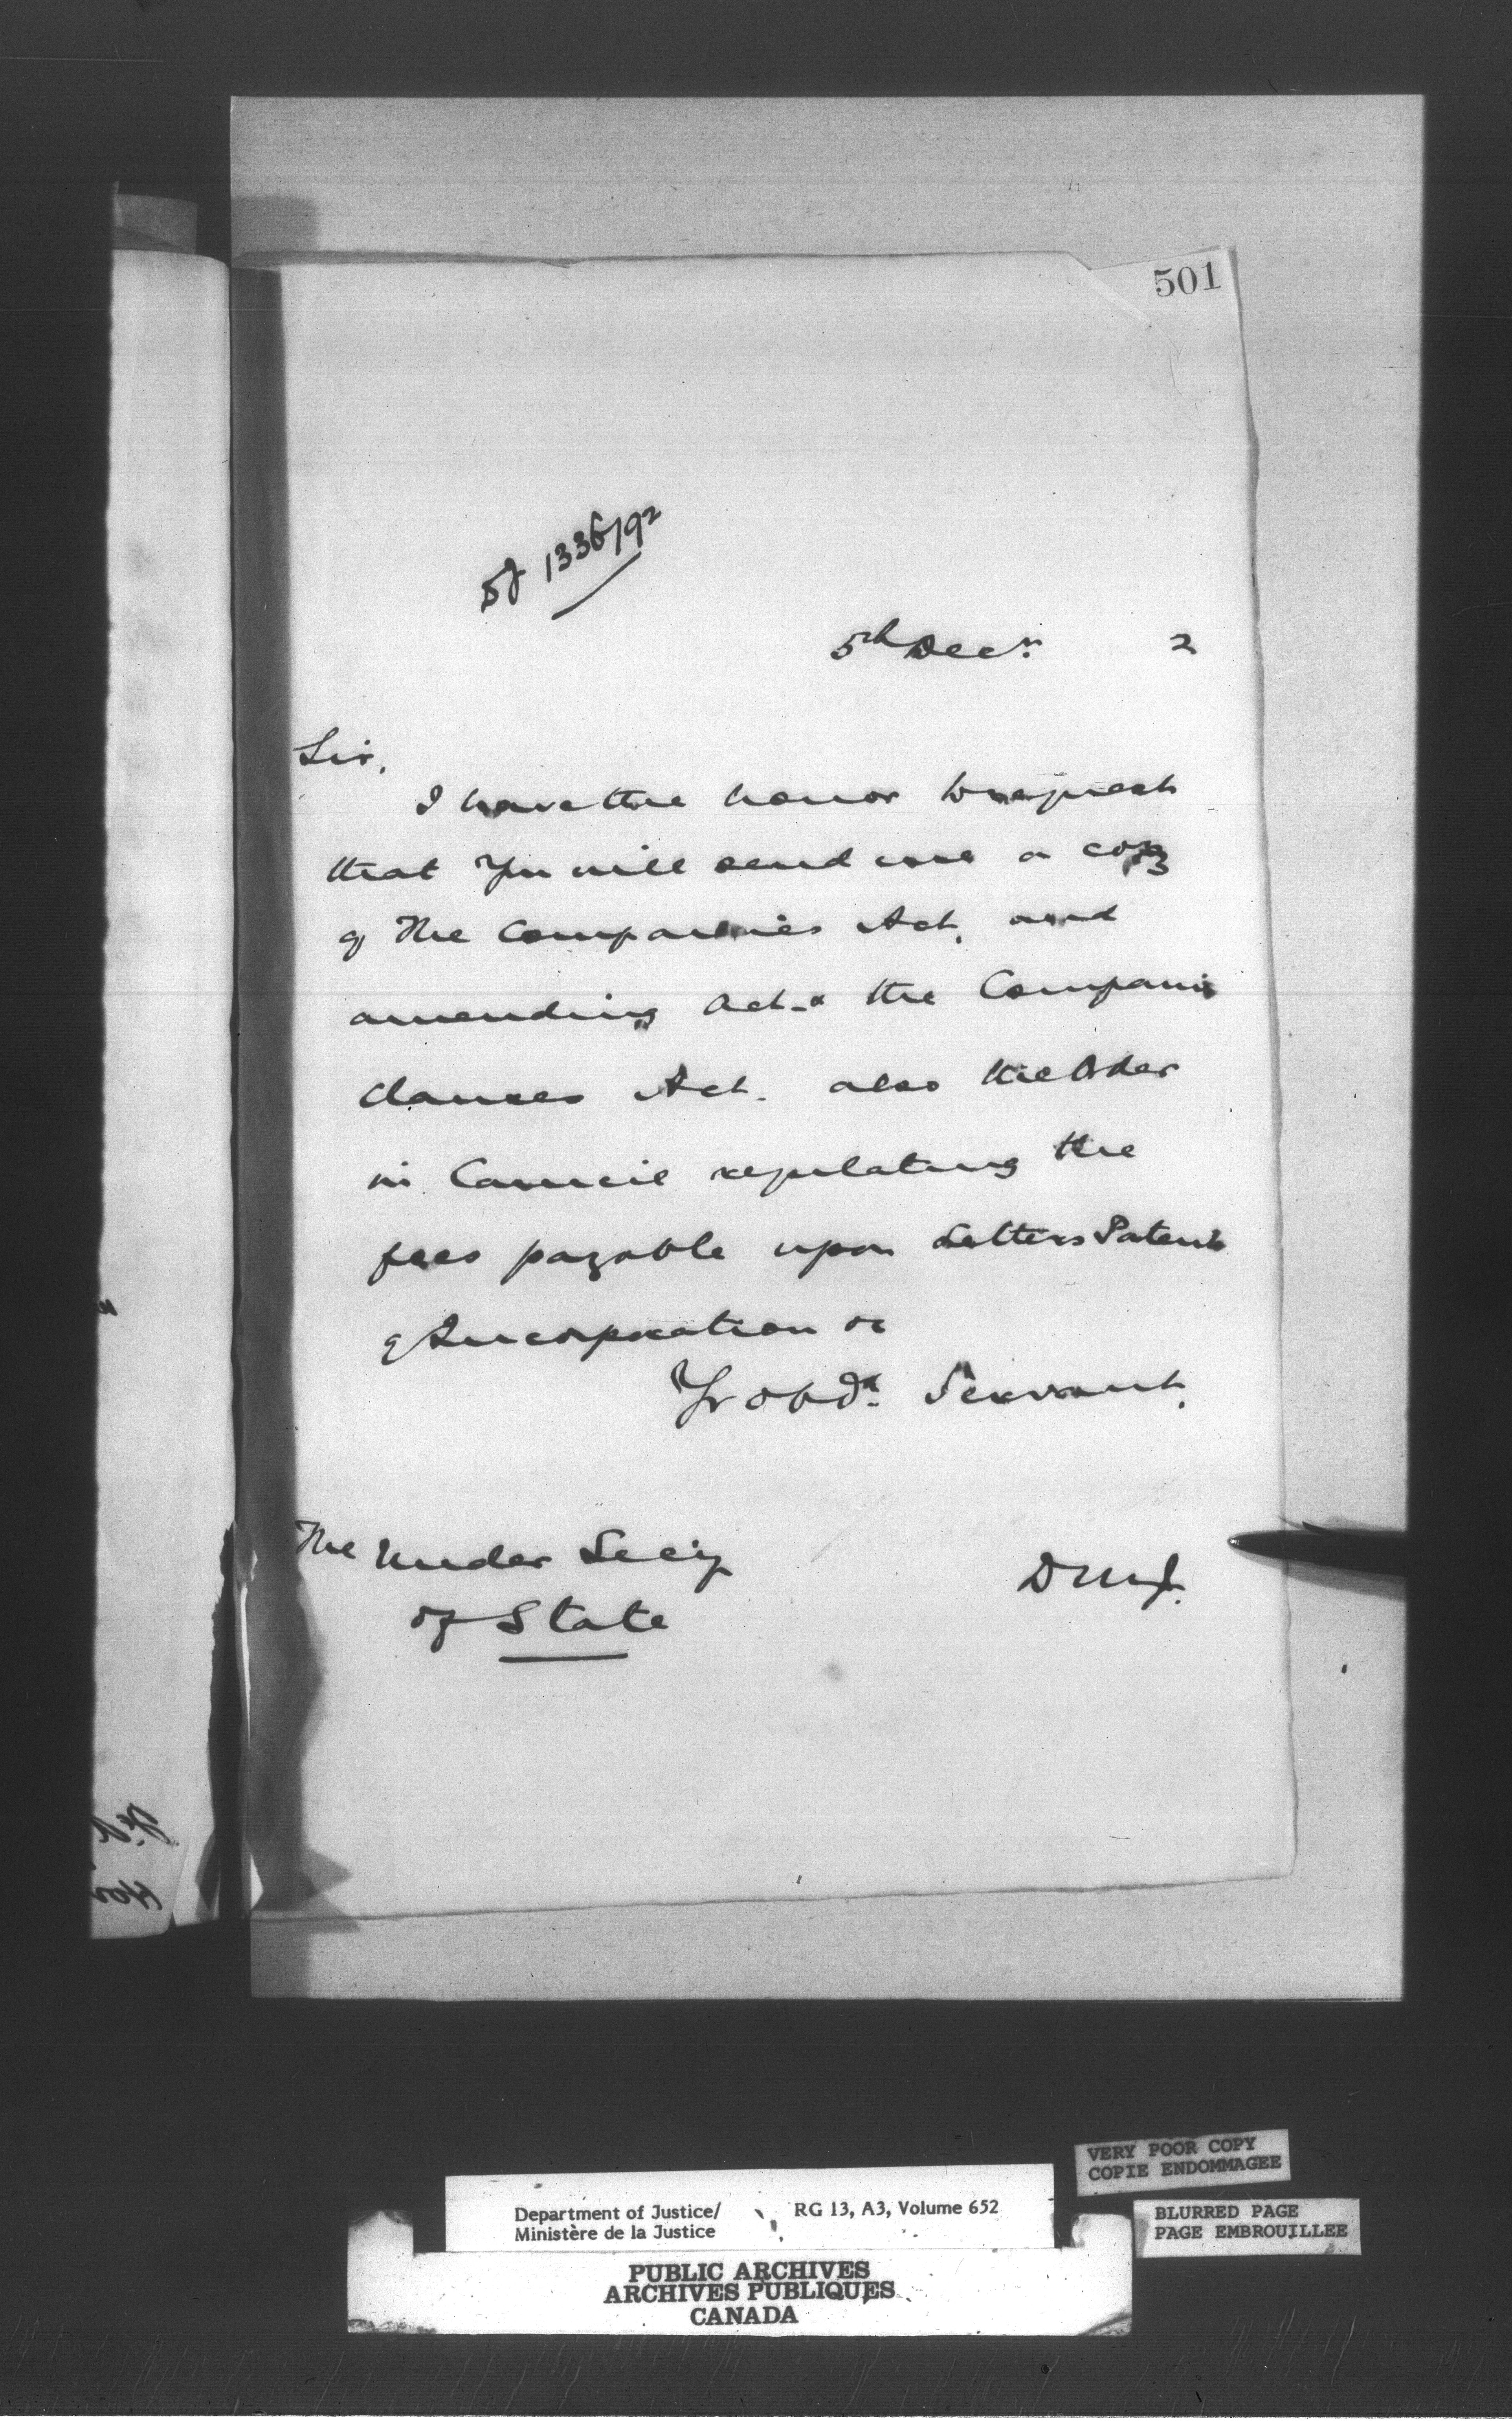 501
1336/92
5th Decr. 2
Sir,
I have the honor to request
that you will send me a copy
of The Companies Act, and
amending Act & the Companies
Clauses Act. also the Order
in Council regulating the
fees payable upon Letters Patent
of Incorporation or
Yr obdt. Servant,
The Under Secy
of State
D M J.
VERY POOR COPY
COPIE ENDOMMAGEE
BLURRED PAGE
PAGE EMBROUILLEE
Department of Justice/ RG 13, A3, Volume 652
Ministère de la Justice
PUBLIC ARCHIVES
ARCHIVES PUBLIQUES
CANADA